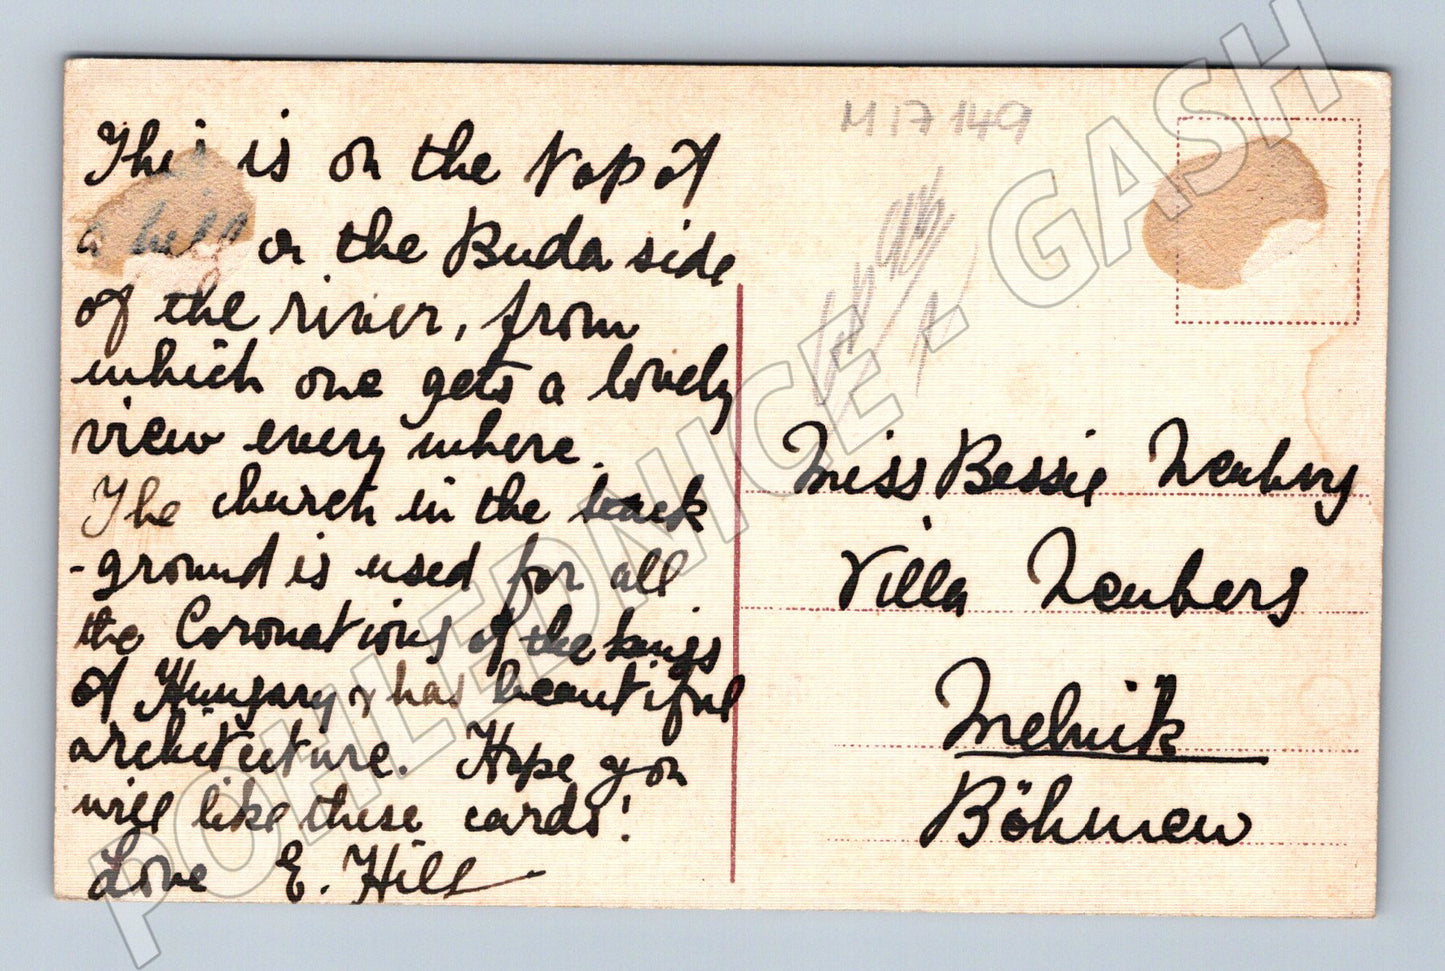 This is on the top of
a hill on the Buda side
of the river, from
which one gets a lovely
view every where.
The church in the back
-ground is used for all
the Coronations of the kings
of Hungary & has beautiful
architecture. Hope you
will like these cards!
Love E. Hill
M 17 149
Miss Bessie Neuberg
Villa Neuberg
Melnik
Böhmen
POHLEDNICE - GASH